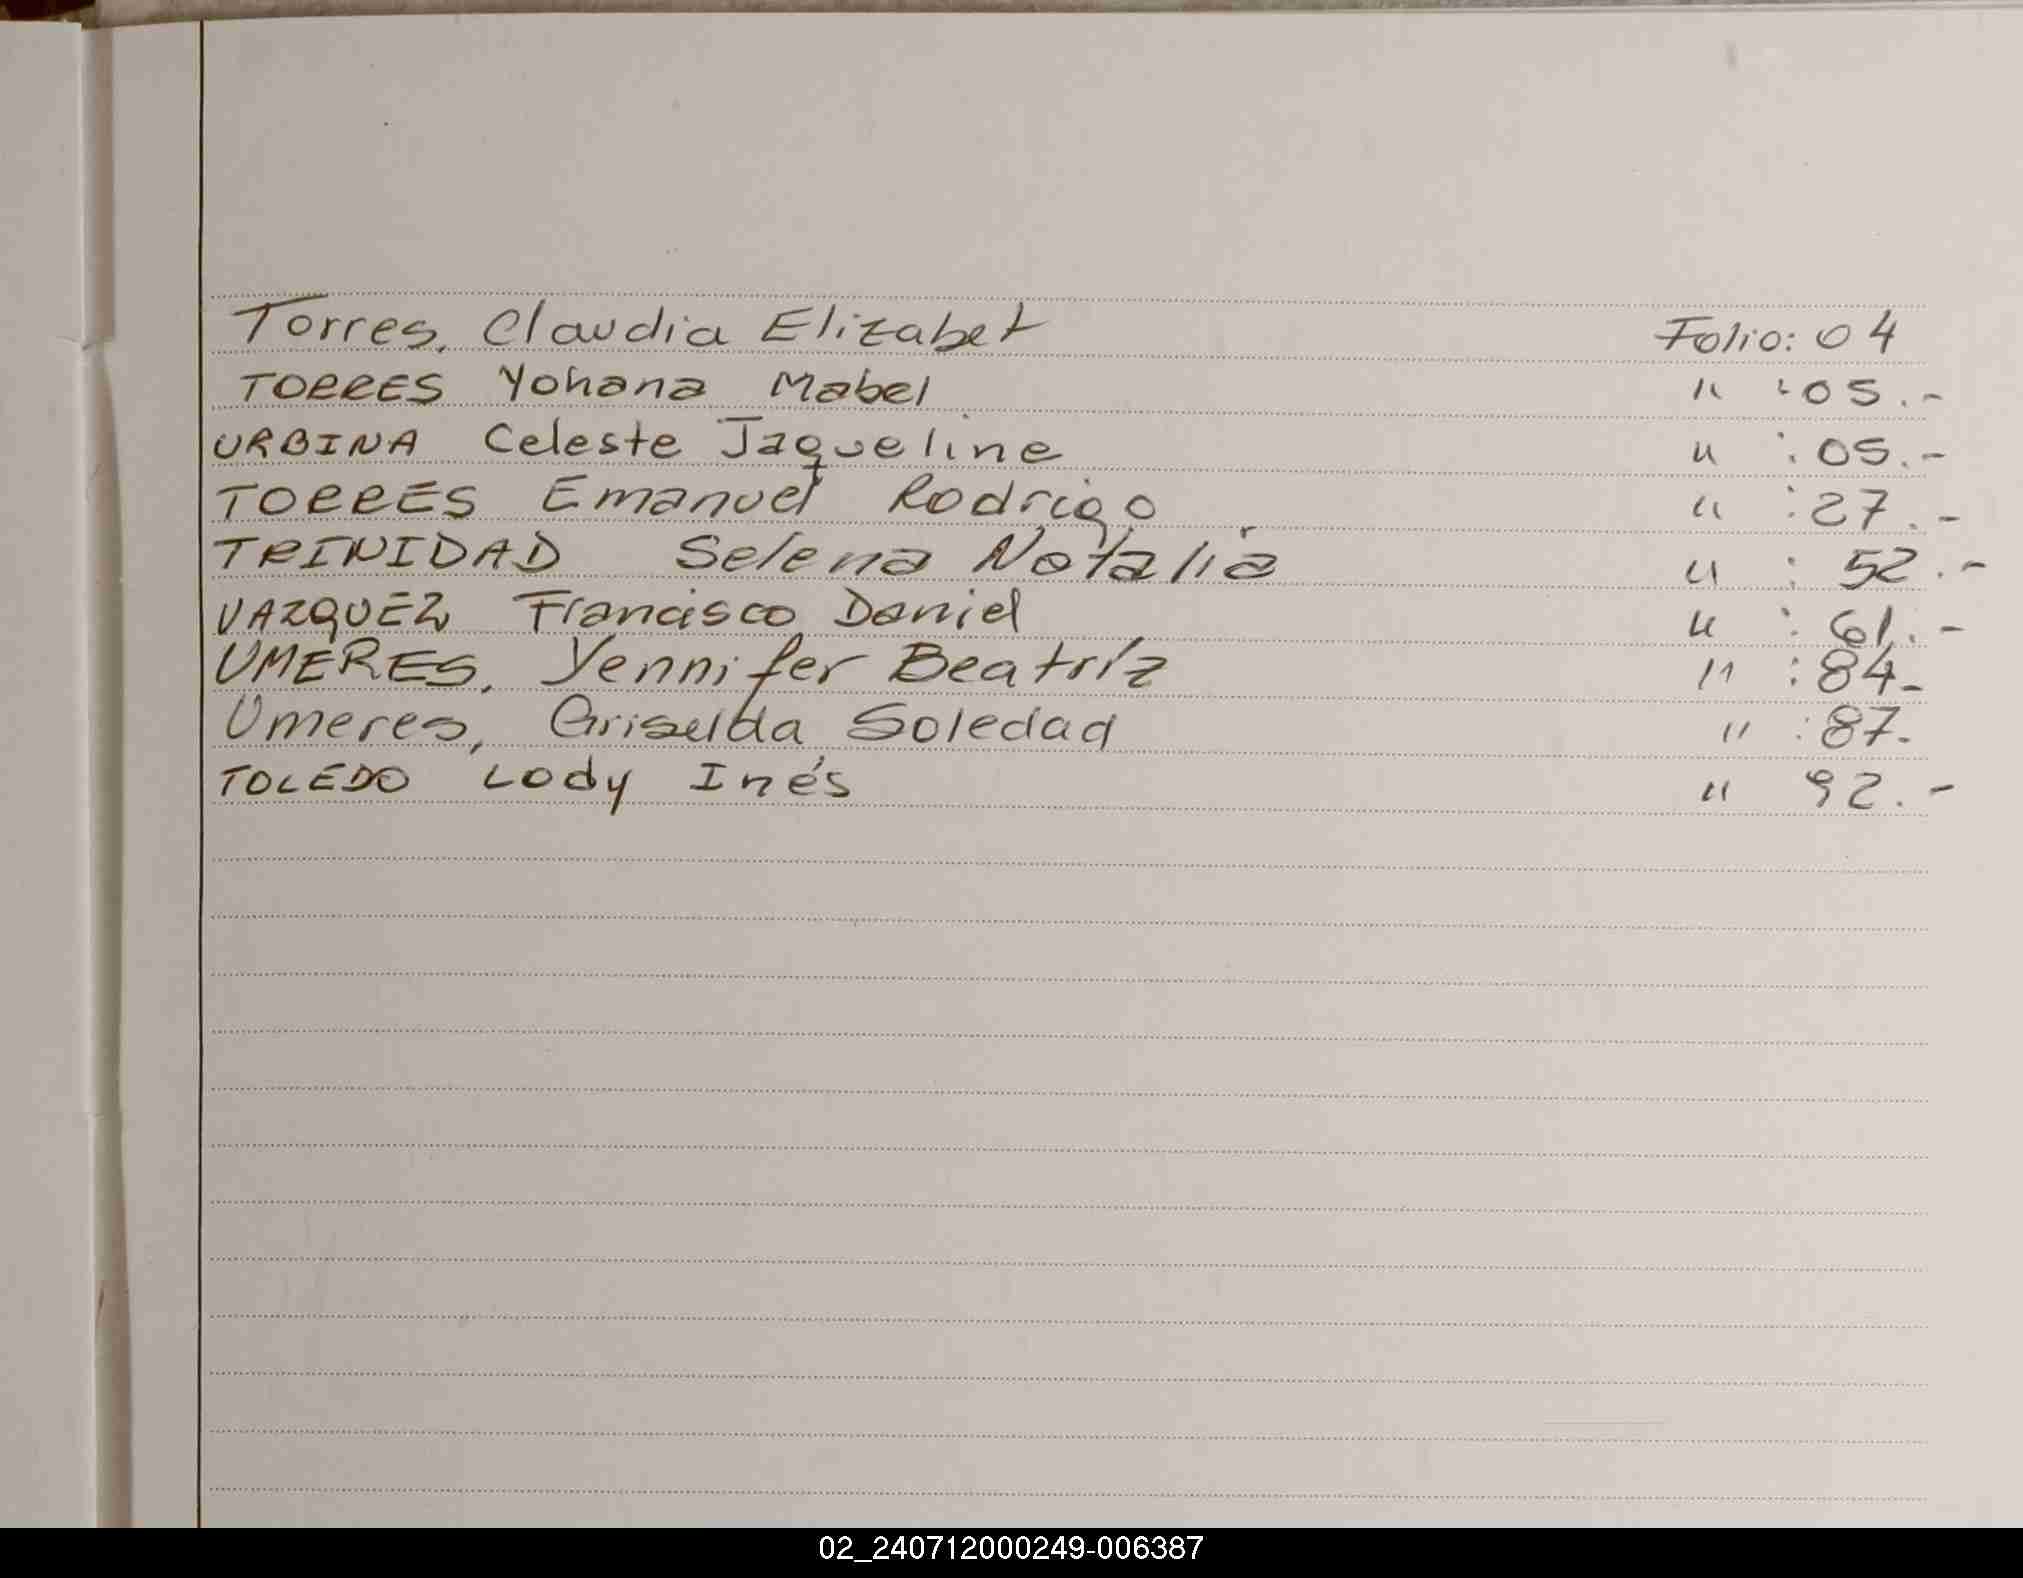 Torres, Claudia Elizabet Folio: 04
TORRES Yohana Mabel " : 05.-
URBINA Celeste Jaqueline " : 05.-
TORRES Emanuel Rodrigo " : 27.-
TRINIDAD Selena Natalia " : 52.-
VAZQUEZ Francisco Daniel " : 61.-
UMERES, Yennifer Beatríz " : 84-
Umeres, Griselda Soledad " : 87-
TOLEDO Lody Inés " 92.-
02_240712000249-006387